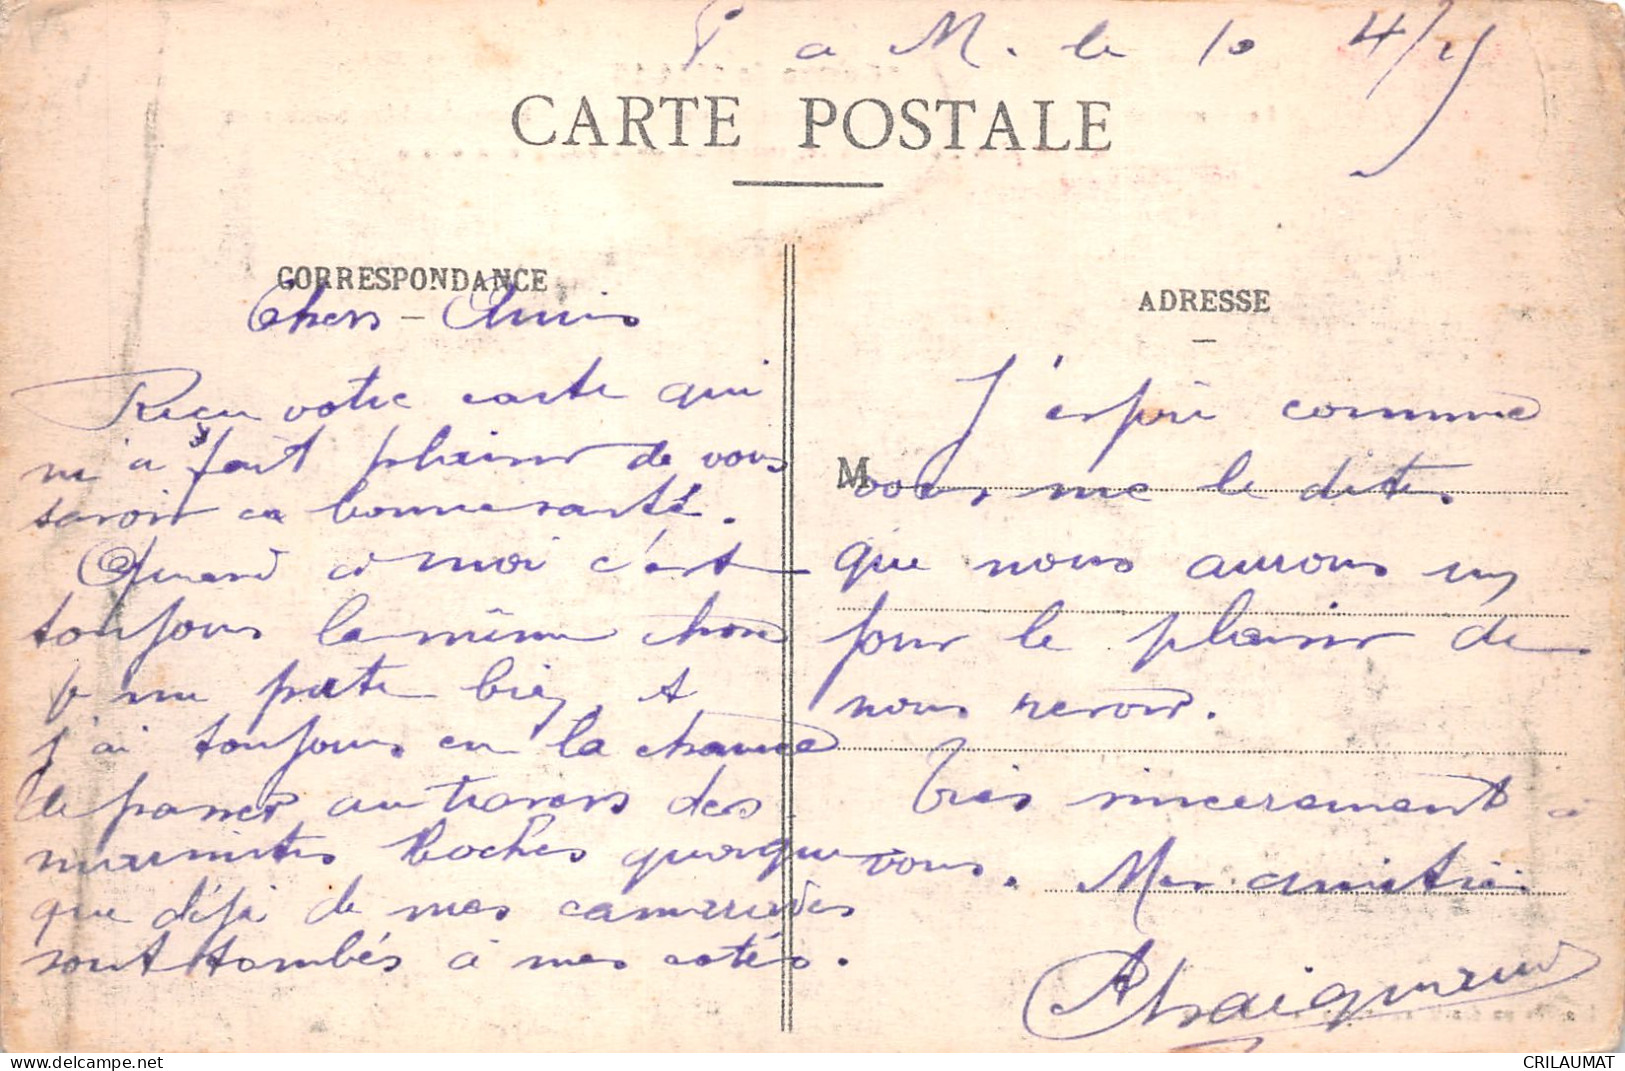 P a M. le 10 4/15
CARTE POSTALE
CORRESPONDANCE
Chers - Amis
Reçu votre carte qui
m'a fait plaisir de vous
savoir en bonne santé.
Quand à moi c'est
toujours la même chose
je me porte bien et
j'ai toujours eu la chance
de passer au travers des
marmites boches quoique
que déjà de mes camarades
sont tombés à mes cotés.
ADRESSE
J'espère comme
M
vous me le dites.
que nous aurons un
jour le plaisir de
nous revoir.
Très sincerement à
vous. Mes amitiés
Chaigneaud
CRILAUMAT